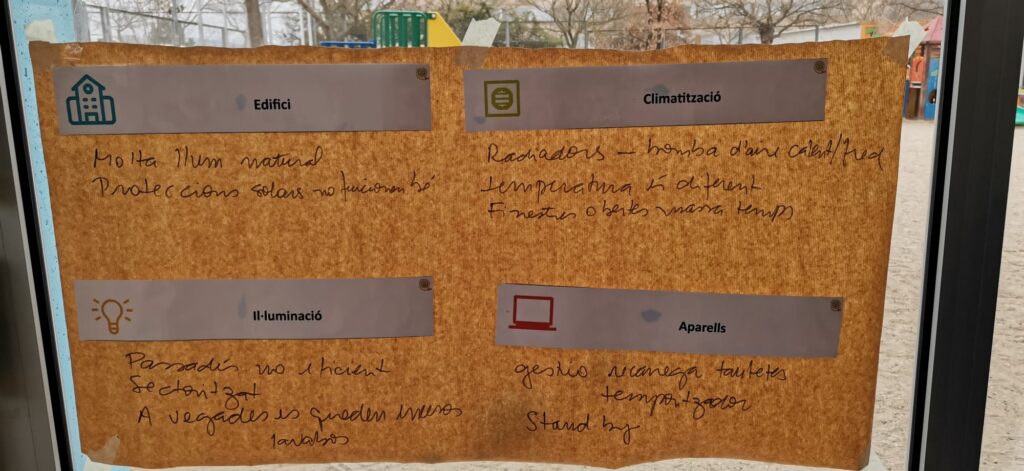 Edifici
Molta llum natural
Proteccions solars no funcionen bé
Climatització
Radiadors – bomba d'aire calent/fred
temperatura és diferent
Finestres obertes massa temps
Il·luminació
Passadís no eficient
Sectoritzat
A vegades es queden encesos
lavabos
Aparells
gestio recarrega tauletes
temporitzador
Stand-by